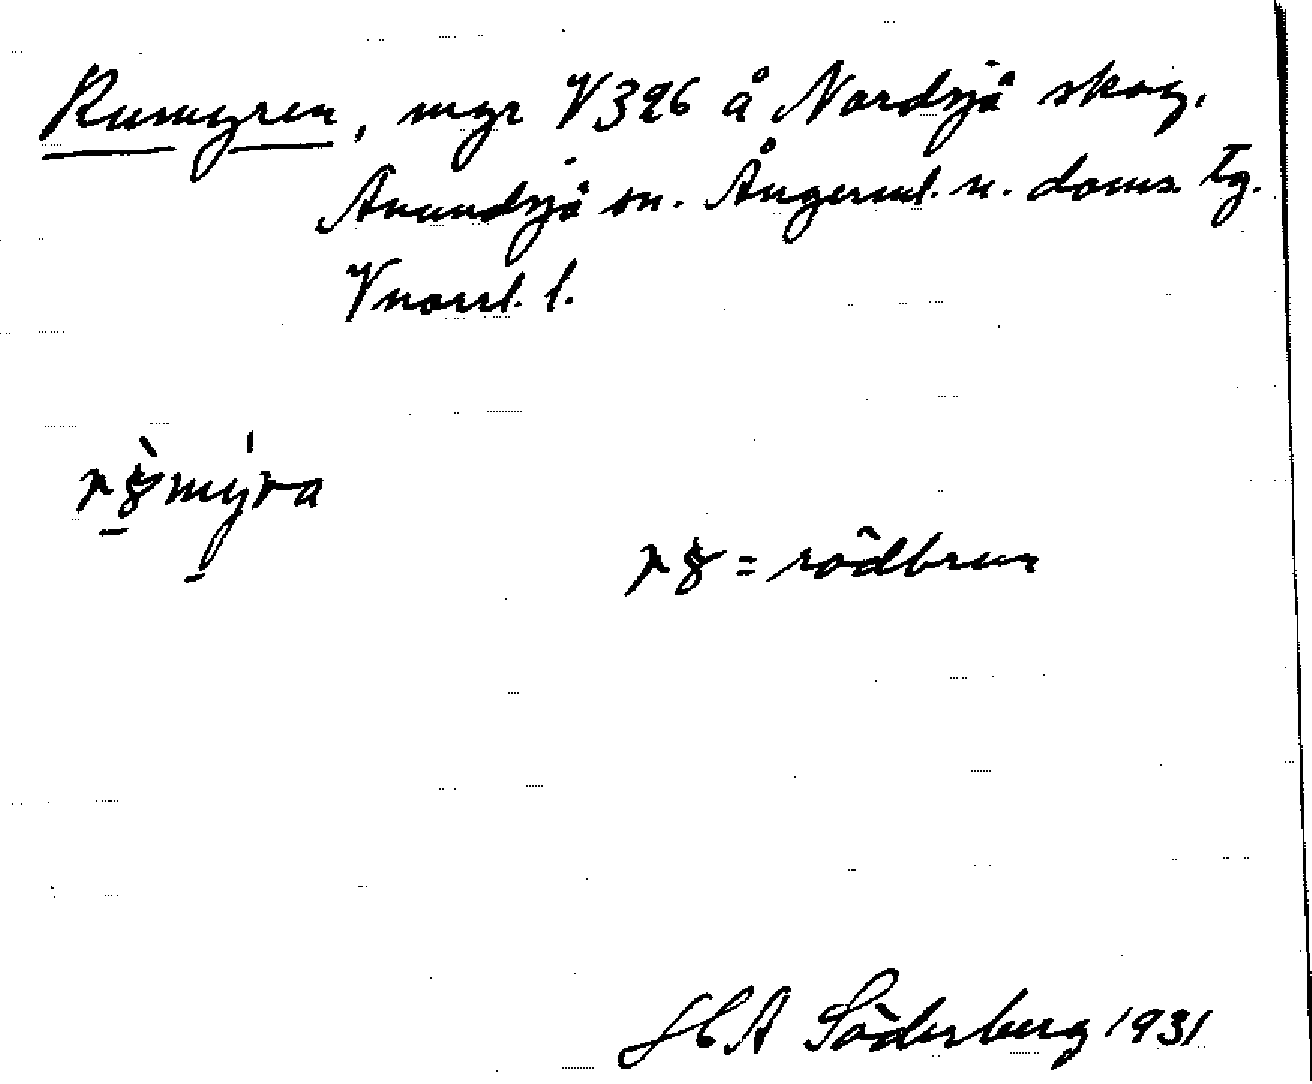 Rumyren, myr V326 å Nordsjö skog,
Anundsjö sn. Ångerml. n. doms. tg.
Vnorrl. l.
= rödbrun
H A Söderberg 1931